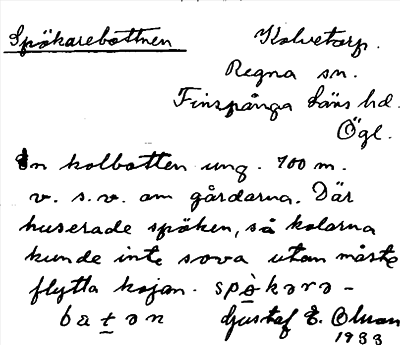 Spökarebottnen Kolvetorp.
Regna sn.
Finspånga läns hd.
Ögl.
En kolbotten ung. 700 m.
v. s. v. om gårdarna. Där
huserade spöken, så kolarna
kunde inte sova utan måste
flytta kojan. spö̀kərə-
batən Gustaf E. Olsson
1933